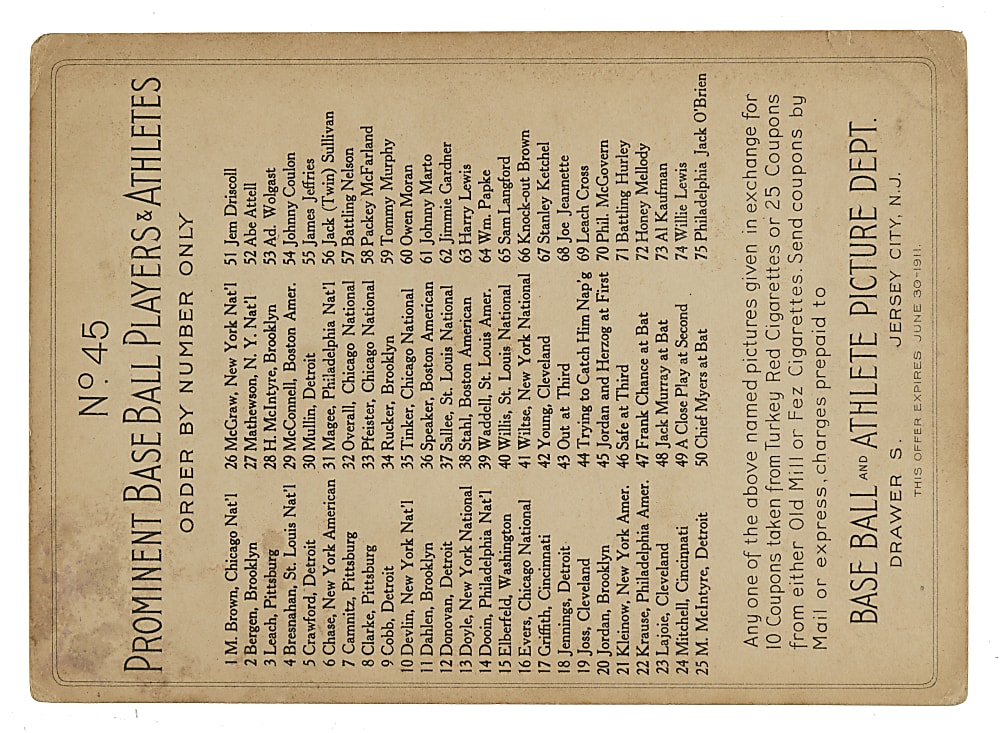 Nº 45
PROMINENT BASE BALL PLAYERS & ATHLETES
ORDER BY NUMBER ONLY
1 M. Brown, Chicago Nat'l
2 Bergen, Brooklyn
3 Leach, Pittsburg
4 Bresnahan, St. Louis Nat'l
5 Crawford, Detroit
6 Chase, New York American
7 Camnitz, Pittsburg
8 Clarke, Pittsburg
9 Cobb, Detroit
10 Devlin, New York Nat'l
11 Dahlen, Brooklyn
12 Donovan, Detroit
13 Doyle, New York National
14 Dooin, Philadelphia Nat'l
15 Elberfeld, Washington
16 Evers, Chicago National
17 Griffith, Cincinnati
18 Jennings, Detroit
19 Joss, Cleveland
20 Jordan, Brooklyn
21 Kleinow, New York Amer.
22 Krause, Philadelphia Amer.
23 Lajoie, Cleveland
24 Mitchell, Cincinnati
25 M. McIntyre, Detroit
26 McGraw, New York Nat'l
27 Mathewson, N. Y. Nat'l
28 H. McIntyre, Brooklyn
29 McConnell, Boston Amer.
30 Mullin, Detroit
31 Magee, Philadelphia Nat'l
32 Overall, Chicago National
33 Pfeister, Chicago National
34 Rucker, Brooklyn
35 Tinker, Chicago National
36 Speaker, Boston American
37 Sallee, St. Louis National
38 Stahl, Boston American
39 Waddell, St. Louis Amer.
40 Willis, St. Louis National
41 Wiltse, New York National
42 Young, Cleveland
43 Out at Third
44 Trying to Catch Him Nap'g
45 Jordan and Herzog at First
46 Safe at Third
47 Frank Chance at Bat
48 Jack Murray at Bat
49 A Close Play at Second
50 Chief Myers at Bat
51 Jem Driscoll
52 Abe Attell
53 Ad. Wolgast
54 Johnny Coulon
55 James Jeffries
56 Jack (Twin) Sullivan
57 Battling Nelson
58 Packey McFarland
59 Tommy Murphy
60 Owen Moran
61 Johnny Marto
62 Jimmie Gardner
63 Harry Lewis
64 Wm. Papke
65 Sam Langford
66 Knock-out Brown
67 Stanley Ketchel
68 Joe Jeannette
69 Leach Cross
70 Phil. McGovern
71 Battling Hurley
72 Honey Mellody
73 Al Kaufman
74 Willie Lewis
75 Philadelphia Jack O'Brien
Any one of the above named pictures given in exchange for
10 Coupons taken from Turkey Red Cigarettes or 25 Coupons
from either Old Mill or Fez Cigarettes. Send coupons by
Mail or express, charges prepaid to
BASE BALL AND ATHLETE PICTURE DEPT.
DRAWER S. JERSEY CITY, N.J.
THIS OFFER EXPIRES JUNE 30-1911.